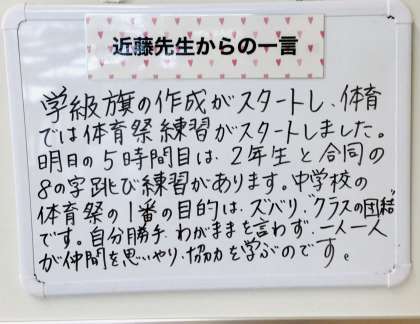 近藤先生からの一言
学級旗の作成がスタートし、体育
では体育祭練習がスタートしました。
明日の5時間目は、2年生と合同の
8の字跳び練習があります。中学校の
体育祭の1番の目的は、ズバリ、クラスの団結
です。自分勝手、わがままを言わず、一人一人
が仲間を思いやり、協力を学ぶのです。